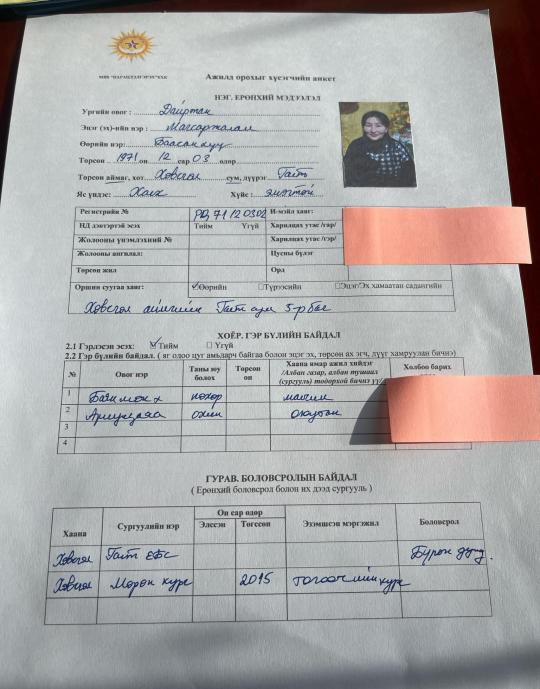 Ажилд орохыг хүсэгчийн анкет
НЭГ. ЕРӨНХИЙ МЭДЭЭЛЭЛ
Ургийн овог : Дайртан
Эцэг (эх)-ийн нэр : Магсаржалам
Өөрийн нэр: Баасанхүү
Төрсөн .. 1971 он 12 сар 03 өдөр
Төрсөн аймаг, хот. Хөвсгөл сум, дүүрэг
Яс үндэс: Халх Хүйс : эмэгтэй
Регистрийн № РВ 71120302 И-мэйл хаяг:
НД дэвтэртэй эсэх Тийм Үгүй Харилцах утас /гар/
Жолооны үнэмлэхний № Харилцах утас /гэр/
Жолооны ангилал: Цусны бүлэг
Төрсөн жил Орд
Оршин суугаа хаяг: ☑Өөрийн ☐Түрээсийн ☐Эцэг/Эх хамаатан садангийн
Хөвсгөл аймгийн 5-р баг
ХОЁР. ГЭР БҮЛИЙН БАЙДАЛ
2.1 Гэрлэсэн эсэх: ☑Тийм ☐ Үгүй
2.2 Гэр бүлийн байдал. ( яг одоо цуг амьдарч байгаа болон эцэг эх, төрсөн ах эгч, дүүг хамруулан бичнэ)
№ Овог нэр Таны юу болох Төрсөн он Хаана ямар ажил хийдэг /Албан газар, албан тушаал (сургууль) тодорхой бичнэ үү/ Холбоо барих
1 Баянмөнх нөхөр малчин
2 охин оюутан
3
4
ГУРАВ. БОЛОВСРОЛЫН БАЙДАЛ
( Ерөнхий боловсрол болон их дээд сургууль )
Хаана Сургуулийн нэр Он сар өдөр Эзэмшсэн мэргэжил Боловсрол
Элссэн Төгссөн
Хөвсгөл ЕБС Бүрэн дунд.
Хөвсгөл Мөрөн курс 2015 тогоочийн курс